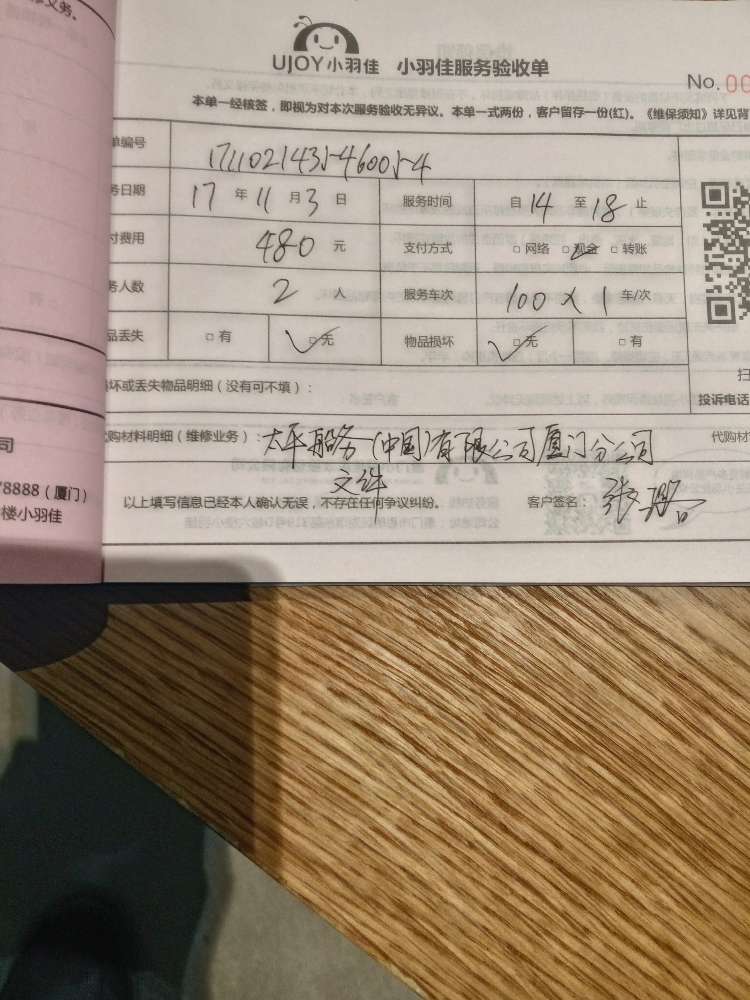 UJOY小羽佳 小羽佳服务验收单
No.00
本单一经核签，即视为对本次服务验收无异议。本单一式两份，客户留存一份(红)。《维保须知》详见背
单编号 1711021435460054
务日期 17 年 11 月 3 日 服务时间 自 14 至 18 止
付费用 480 元 支付方式 □网络 □现金 □转账
务人数 2 人 服务车次 100×1 车/次
品丢失 □有 □无 物品损坏 □无 □有
坏或丢失物品明细（没有可不填）：
投诉电话
购材料明细（维修业务）： 太平船务(中国)有限公司厦门分公司 代购材
文件
以上填写信息已经本人确认无误，不存在任何争议纠纷。 客户签名： 张
修义务。
司
8888（厦门）
楼小羽佳